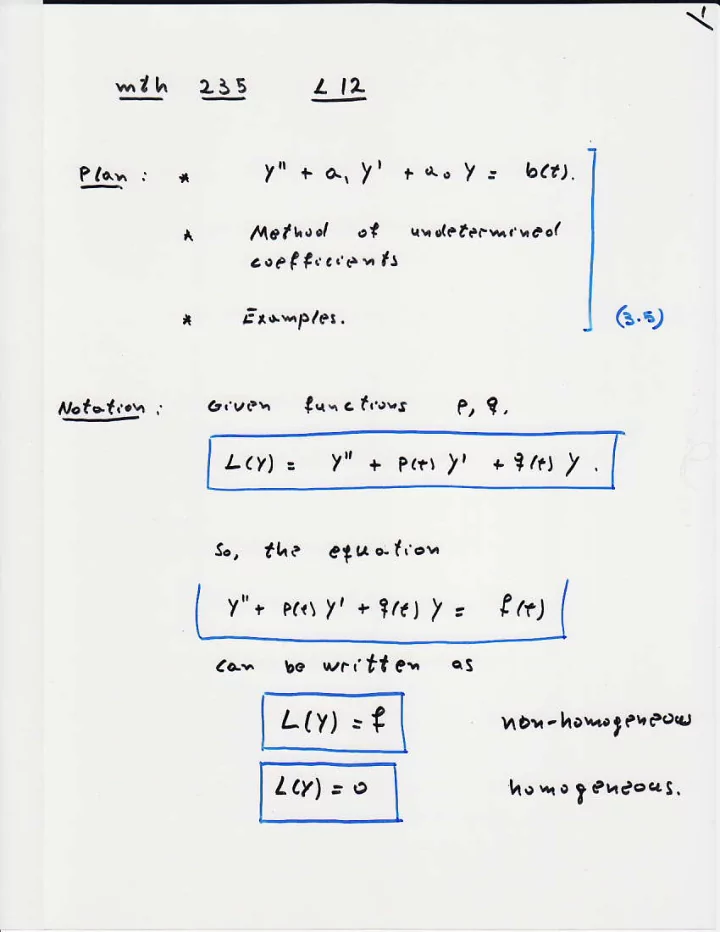 1
mth 235 L 12
Plan : * y'' + a₁ y' + a₀ y = b(t).
* Method of undetermined
coefficients
* Examples.
(3.5)
Notation : Given functions p, q,
L(y) = y'' + p(t) y' + q(t) y .
So, the equation
y'' + p(t) y' + q(t) y = f(t)
can be written as
L(y) = f non-homogeneous
L(y) = 0 homogeneous.